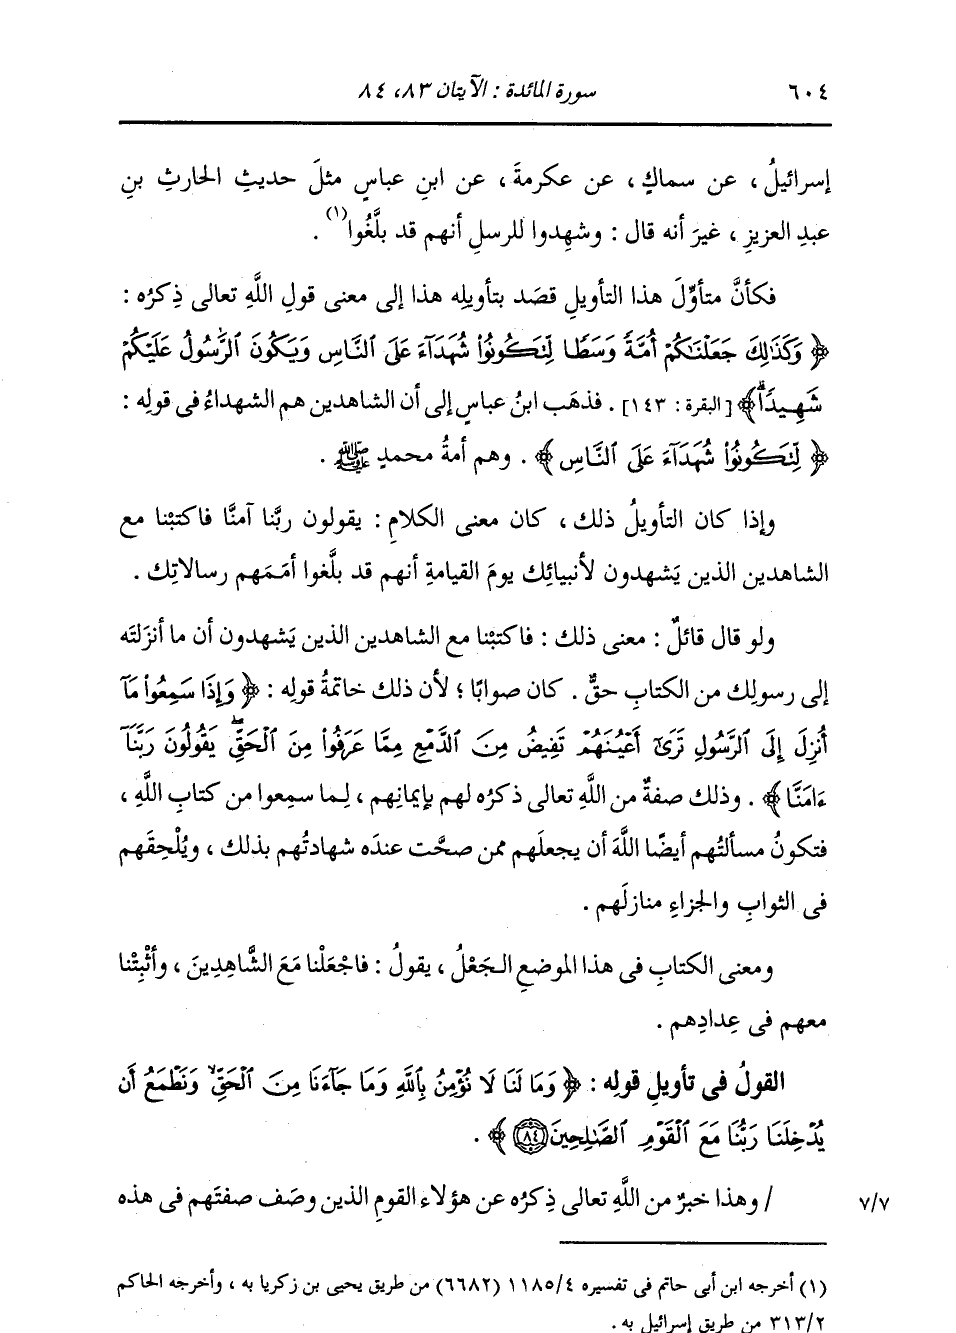 ٦٠٤ سورة المائدة : الآيتان ٨٣، ٨٤
إسرائيلُ ، عن سماكٍ ، عن عكرمةَ ، عن ابنِ عباسٍ مثلَ حديثِ الحارثِ بنِ
عبدِ العزيزِ ، غيرَ أنه قال : وشهِدوا للرسلِ أنهم قد بلَّغُوا(١) .
فكأنَّ متأوِّلَ هذا التأويلِ قصَد بتأويلِه هذا إلى معنى قولِ اللَّهِ تعالى ذِكرُه :
﴿ وَكَذَٰلِكَ جَعَلْنَٰكُمْ أُمَّةً وَسَطًا لِّتَكُونُوا۟ شُهَدَآءَ عَلَى ٱلنَّاسِ وَيَكُونَ ٱلرَّسُولُ عَلَيْكُمْ
شَهِيدًا ۗ﴾ [البقرة : ١٤٣] . فذهَب ابنُ عباسٍ إلى أن الشاهدين هم الشهداءُ فى قولِه :
﴿ لِّتَكُونُوا۟ شُهَدَآءَ عَلَى ٱلنَّاسِ ﴾ . وهم أمةُ محمدٍ ﷺ .
وإذا كان التأويلُ ذلك ، كان معنى الكلامِ : يقولون ربَّنا آمنَّا فاكتبْنا مع
الشاهدين الذين يَشهدون لأنبيائِك يومَ القيامةِ أنهم قد بلَّغوا أمَمَهم رسالاتِك .
ولو قال قائلٌ : معنى ذلك : فاكتبْنا مع الشاهدين الذين يَشهدون أن ما أنزلتَه
إلى رسولِك من الكتابِ حقٌّ . كان صوابًا ؛ لأن ذلك خاتمةُ قولِه : ﴿ وَإِذَا سَمِعُوا۟ مَآ
أُنزِلَ إِلَى ٱلرَّسُولِ تَرَىٰٓ أَعْيُنَهُمْ تَفِيضُ مِنَ ٱلدَّمْعِ مِمَّا عَرَفُوا۟ مِنَ ٱلْحَقِّ ۖ يَقُولُونَ رَبَّنَآ
ءَامَنَّا ﴾ . وذلك صفةٌ من اللَّهِ تعالى ذكرُه لهم بإيمانِهم ، لِما سمِعوا من كتابِ اللَّهِ ،
فتكونُ مسألتُهم أيضًا اللَّهَ أن يجعلَهم ممن صحَّت عندَه شهادتُهم بذلك ، ويُلْحِقَهم
فى الثوابِ والجزاءِ منازلَهم .
ومعنى الكتابِ فى هذا الموضعِ الجَعْلُ ، يقولُ : فاجْعَلْنا مَعَ الشَّاهِدِينَ ، وأثْبِتْنا
معهم فى عِدادِهم .
القولُ فى تأويلِ قولِه : ﴿ وَمَا لَنَا لَا نُؤْمِنُ بِٱللَّهِ وَمَا جَآءَنَا مِنَ ٱلْحَقِّ ۙ وَنَطْمَعُ أَن
يُدْخِلَنَا رَبُّنَا مَعَ ٱلْقَوْمِ ٱلصَّٰلِحِينَ ۝٨٤ ﴾ .
٧/٧ / وهذا خبرٌ من اللَّهِ تعالى ذِكرُه عن هؤلاء القومِ الذين وصَف صفتَهم فى هذه
(١) أخرجه ابن أبى حاتم فى تفسيره ١١٨٥/٤ (٦٦٨٢) من طريق يحيى بن زكريا به ، وأخرجه الحاكم
٣١٣/٢ من طريق إسرائيل به .